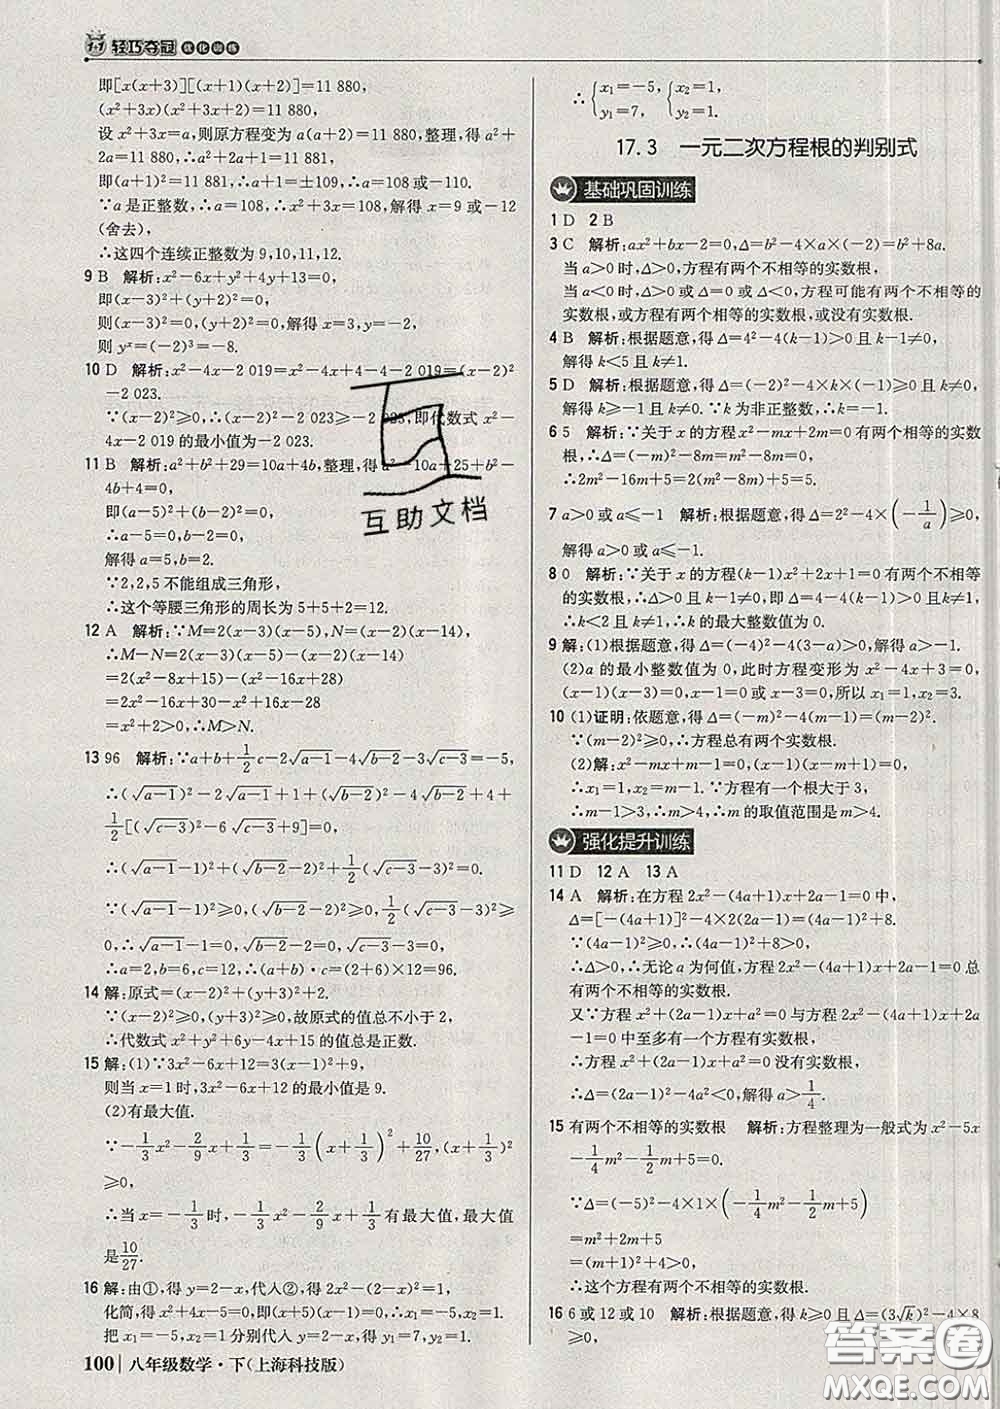 1+1 轻巧夺冠 优化训练
即[x(x+3)][(x+1)(x+2)]=11 880,
(x²+3x)(x²+3x+2)=11 880,
设 x²+3x=a,则原方程变为 a(a+2)=11 880,整理,得 a²+
2a+1=11 880+1,
即(a+1)²=11 881,∴a+1=±109,∴a=108或-110.
∵a 是正整数,∴a=108,∴x²+3x=108,解得 x=9或-12
(舍去),
∴这四个连续正整数为 9,10,11,12.
9 B 解析:x²-6x+y²+4y+13=0,
即(x-3)²+(y+2)²=0,
则(x-3)²=0,(y+2)²=0,解得 x=3,y=-2,
则 yˣ=(-2)³=-8.
10 D 解析:x²-4x-2 019=x²-4x+4-4-2 019=(x-2)²
-2 023.
∵(x-2)²≥0,∴(x-2)²-2 023≥-2 023,即代数式 x²-
4x-2 019 的最小值为-2 023.
11 B 解析:a²+b²+29=10a+4b,整理,得 a²-10a+25+b²-
4b+4=0,
即(a-5)²+(b-2)²=0,
∴a-5=0,b-2=0,
解得 a=5,b=2.
∵2,2,5 不能组成三角形,
∴这个等腰三角形的周长为 5+5+2=12.
12 A 解析:∵M=2(x-3)(x-5),N=(x-2)(x-14),
∴M-N=2(x-3)(x-5)-(x-2)(x-14)
=2(x²-8x+15)-(x²-16x+28)
=2x²-16x+30-x²+16x-28
=x²+2>0,∴M>N.
13 96 解析:∵a+b+1/2c-2√(a-1)-4√(b-2)-3√(c-3)=-5,
∴(√(a-1))²-2√(a-1)+1+(√(b-2))²-4√(b-2)+4+
1/2[(√(c-3))²-6√(c-3)+9]=0,
∴(√(a-1)-1)²+(√(b-2)-2)²+1/2(√(c-3)-3)²=0.
∵(√(a-1)-1)²≥0,(√(b-2)-2)²≥0,1/2(√(c-3)-3)²≥
0,∴√(a-1)-1=0,√(b-2)-2=0,√(c-3)-3=0,
∴a=2,b=6,c=12,∴(a+b)·c=(2+6)×12=96.
14 解:原式=(x-2)²+(y+3)²+2.
∵(x-2)²≥0,(y+3)²≥0,故原式的值总不小于 2,
∴代数式 x²+y²+6y-4x+15 的值总是正数.
15 解:(1)∵3x²-6x+12=3(x-1)²+9,
则当 x=1 时,3x²-6x+12 的最小值是 9.
(2)有最大值.
∵-1/3x²-2/9x+1/3=-1/3(x+1/3)²+10/27,-1/3(x+1/3)²≤
0,
∴当 x=-1/3时,-1/3x²-2/9x+1/3有最大值,最大值
是10/27.
16 解:由①,得 y=2-x,代入②,得 2x²-(2-x)²=1,
化简,得 x²+4x-5=0,即(x+5)(x-1)=0,∴x₁=-5,x₂=1.
把 x₁=-5,x₂=1 分别代入 y=2-x,得 y₁=7,y₂=1.
100 八年级数学·下(上海科技版)
∴ {x₁=-5, y₁=7, {x₂=1, y₂=1.
17.3 一元二次方程根的判别式
基础巩固训练
1 D 2 B
3 C 解析:ax²+bx-2=0,Δ=b²-4×a×(-2)=b²+8a.
当 a>0 时,Δ>0,方程有两个不相等的实数根,
当 a<0 时,Δ>0 或 Δ=0 或 Δ<0,方程可能有两个不相等的
实数根,或方程有两个相等的实数根,或没有实数根.
4 B 解析:根据题意,得 Δ=4²-4(k-1)>0 且 k-1≠0,
解得 k<5 且 k≠1.
5 D 解析:根据题意,得 Δ=(-2)²-4×k×(-1)≥0 且 k≠
0,解得 k≥-1 且 k≠0.∵k 为非正整数,∴k=-1.
6 5 解析:∵关于 x 的方程 x²-mx+2m=0 有两个相等的实数
根,∴Δ=(-m)²-4×2m=m²-8m=0,∴m²=8m,
∴2m²-16m+5=2(m²-8m)+5=5.
7 a>0 或 a≤-1 解析:根据题意,得 Δ=2²-4×(-1/a)≥0,
解得 a>0 或 a≤-1.
8 0 解析:∵关于 x 的方程(k-1)x²+2x+1=0 有两个不相等
的实数根,∴Δ>0 且 k-1≠0,即 Δ=4-4(k-1)>0 且 k≠1,
∴k<2 且 k≠1,∴k 的最大整数值为 0.
9 解:(1)根据题意,得 Δ=(-4)²-4(3-a)>0,解得 a>-1.
(2)a 的最小整数值为 0,此时方程变形为 x²-4x+3=0,
(x-1)(x-3)=0,x-1=0 或 x-3=0,所以 x₁=1,x₂=3.
10 (1)证明:依题意,得 Δ=(-m)²-4(m-1)=(m-2)².
∵(m-2)²≥0,∴方程总有两个实数根.
(2)解:x²-mx+m-1=0,(x-1)(x-m+1)=0,
∴x₁=1,x₂=m-1.∵方程有一个根大于 3,
∴m-1>3,∴m>4,∴m 的取值范围是 m>4.
强化提升训练
11 D 12 A 13 A
14 A 解析:在方程 2x²-(4a+1)x+2a-1=0 中,
Δ=[-(4a+1)]²-4×2(2a-1)=(4a-1)²+8.
∵(4a-1)²≥0,∴(4a-1)²+8>0,
∴Δ>0,∴无论 a 为何值,方程 2x²-(4a+1)x+2a-1=0 总
有两个不相等的实数根.
又∵方程 x²+(2a-1)x+a²=0 与方程 2x²-(4a+1)x+2a
-1=0 中至多有一个方程有实数根,
∴方程 x²+(2a-1)x+a²=0 没有实数根,
∴Δ=(2a-1)²-4a²<0,解得 a>1/4.
15 有两个不相等的实数根 解析:方程整理为一般式为 x²-5x
-1/4m²-1/2m+5=0.
∵Δ=(-5)²-4×1×(-1/4m²-1/2m+5)
=m²+2m+5
=(m+1)²+4>0,
∴这个方程有两个不相等的实数根.
16 6 或 12 或 10 解析:根据题意,得 k≥0 且 Δ=(3√k)²-4×8
≥0,
互助文档
答案圈
MXQE.COM